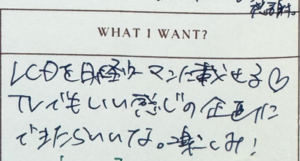 WHAT I WANT?
LCDを日経ウーマンに載せる♡
TVでもいい感じの企画に
できたらいいな。楽しみ!